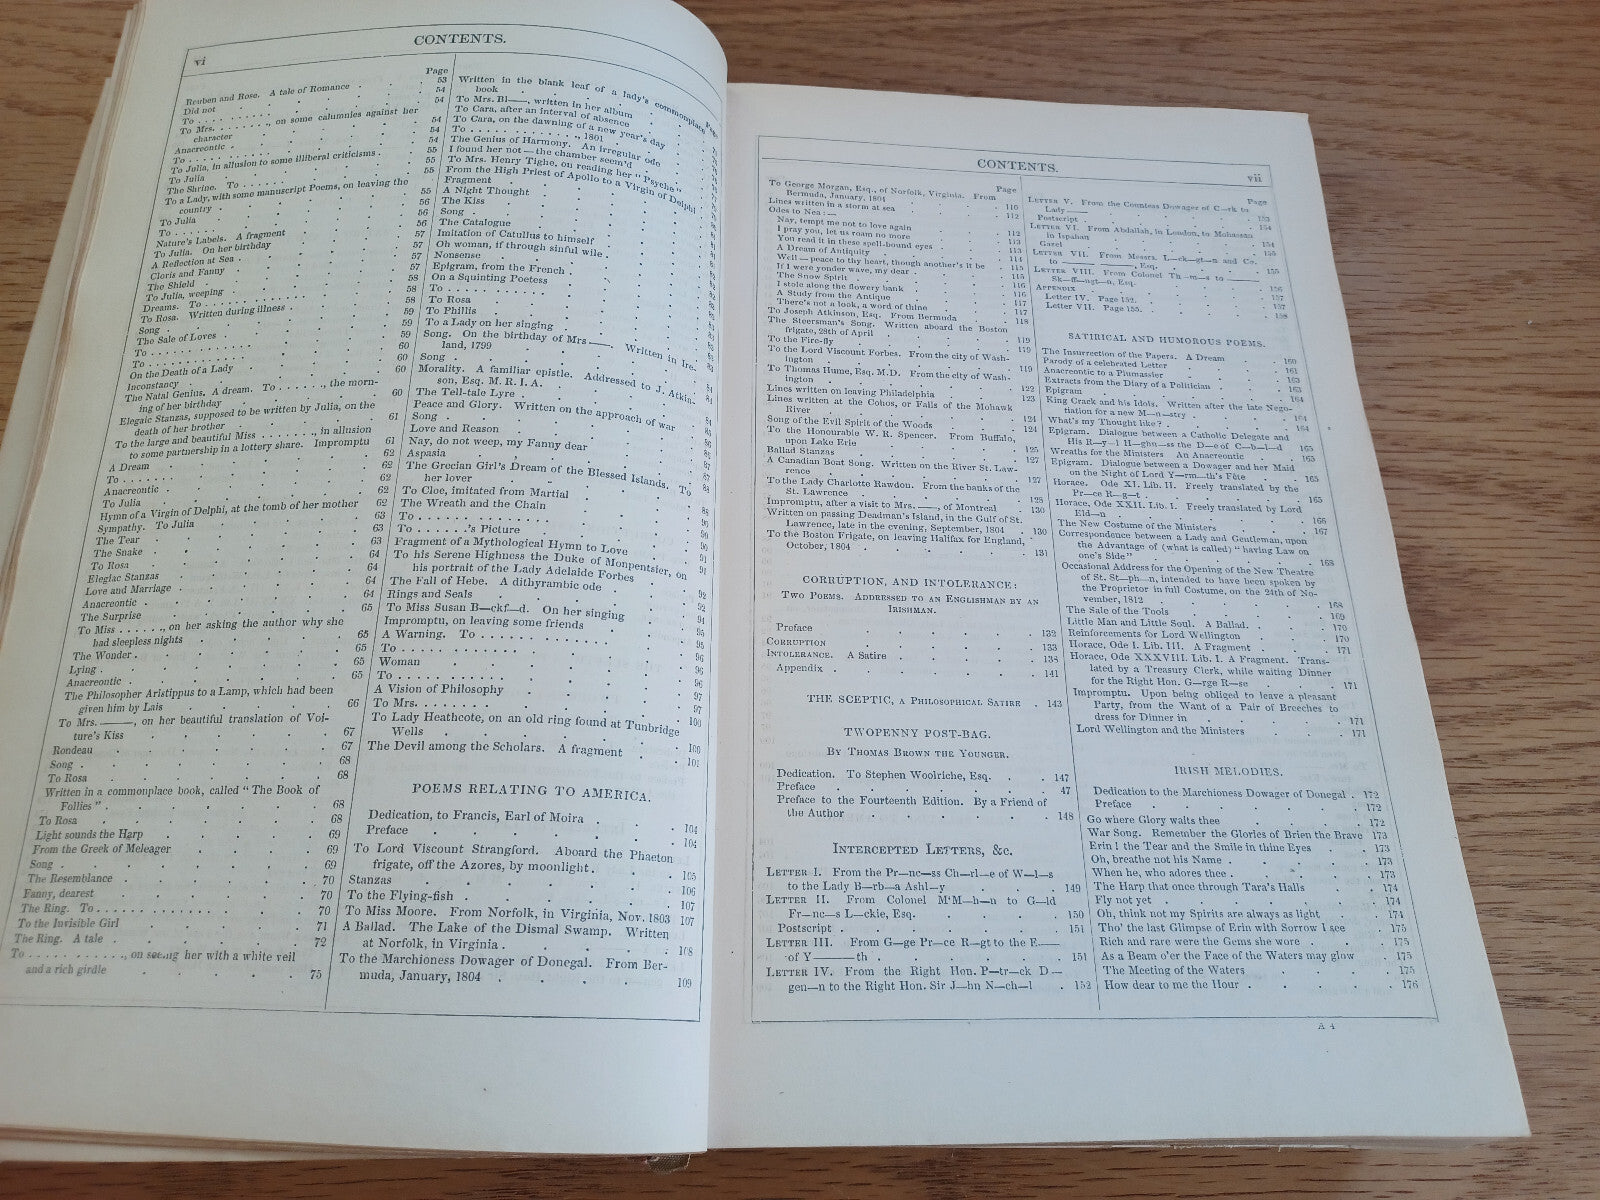 vi
CONTENTS.
Page
Reuben and Rose. A tale of Romance . . . 53
Did not . . . . . . . 54
To . . . . . . . . . . 54
To Mrs. . . . . . . ., on some calumnies against her
character . . . . . . 54
Anacreontic . . . . . . 54
To . . . . . . . . . . 54
To Julia, in allusion to some illiberal criticisms . 55
To Julia . . . . . . 55
The Shrine. To . . . . . . . 55
To a Lady, with some manuscript Poems, on leaving the
country . . . . . . 55
To Julia . . . . . . 56
To . . . . . . . . . . 56
Nature's Labels. A fragment . . . 56
To Julia. On her birthday . . . 57
A Reflection at Sea . . . . . 57
Cloris and Fanny . . . . . 57
The Shield . . . . . . 57
To Julia, weeping . . . . . 58
Dreams. To . . . . . . . 58
To Rosa. Written during illness . . . 58
Song . . . . . . . 59
The Sale of Loves . . . . . 59
To . . . . . . . . . . 60
To . . . . . . . . . . 60
On the Death of a Lady . . . . 60
Inconstancy . . . . . .
The Natal Genius. A dream. To . . . . . . ., the morn-
ing of her birthday . . . . . 60
Elegiac Stanzas, supposed to be written by Julia, on the
death of her brother . . . . 61
To the large and beautiful Miss . . . . . . ., in allusion
to some partnership in a lottery share. Impromptu 61
A Dream . . . . . . 62
To . . . . . . . . . . 62
Anacreontic . . . . . . 62
To Julia . . . . . . 62
Hymn of a Virgin of Delphi, at the tomb of her mother 62
Sympathy. To Julia . . . . 63
The Tear . . . . . . 63
The Snake . . . . . . 63
To Rosa . . . . . . 64
Elegiac Stanzas . . . . . 64
Love and Marriage . . . . . 64
Anacreontic . . . . . . 64
The Surprise . . . . . . 65
To Miss . . . . . ., on her asking the author why she
had sleepless nights . . . . . 65
The Wonder . . . . . . 65
Lying . . . . . . .
Anacreontic . . . . . . 65
The Philosopher Aristippus to a Lamp, which had been
given him by Lais . . . . . 66
To Mrs. ———, on her beautiful translation of Voi-
ture's Kiss . . . . . . 67
Rondeau . . . . . . 67
Song . . . . . . . 68
To Rosa . . . . . . 68
Written in a commonplace book, called "The Book of
Follies" . . . . . . 68
To Rosa . . . . . . 68
Light sounds the Harp . . . . 69
From the Greek of Meleager . . . . 69
Song . . . . . . . 69
The Resemblance . . . . . 70
Fanny, dearest . . . . . 70
The Ring. To . . . . . . . 70
To the Invisible Girl . . . . . 71
The Ring. A tale . . . . . 72
To . . . . . . . . . ., on seeing her with a white veil
and a rich girdle . . . . . 75
Page
Written in the blank leaf of a lady's commonplace
book . . . . . .
To Mrs. Bl——, written in her album . .
To Cara, after an interval of absence . .
To Cara, on the dawning of a new year's day .
To . . . . . . . . . ., 1801 . .
The Genius of Harmony. An irregular ode .
I found her not — the chamber seem'd . .
To Mrs. Henry Tighe, on reading her "Psyche" .
From the High Priest of Apollo to a Virgin of Delphi
Fragment . . . . . .
A Night Thought . . . . .
The Kiss . . . . . .
Song . . . . . . .
The Catalogue . . . . . .
Imitation of Catullus to himself . . .
Oh woman, if through sinful wile . . .
Nonsense . . . . . .
Epigram, from the French . . . .
On a Squinting Poetess . . . .
To . . . . . . . . . .
To Rosa . . . . . .
To Phillis . . . . . .
To a Lady on her singing . . . .
Song. On the birthday of Mrs ——. Written in Ire-
land, 1799 . . . . . .
Song . . . . . . .
Morality. A familiar epistle. Addressed to J. Atkin-
son, Esq. M. R. I. A. . . . . .
The Tell-tale Lyre . . . . .
Peace and Glory. Written on the approach of war .
Song . . . . . . .
Love and Reason . . . . .
Nay, do not weep, my Fanny dear . . .
Aspasia . . . . . .
The Grecian Girl's Dream of the Blessed Islands. To
her lover . . . . . .
To Cloe, imitated from Martial . . .
The Wreath and the Chain . . . .
To . . . . . . . . . .
To . . . . . . .'s Picture . . . .
Fragment of a Mythological Hymn to Love .
To his Serene Highness the Duke of Monpentsier, on
his portrait of the Lady Adelaide Forbes . 91
The Fall of Hebe. A dithyrambic ode . . 92
Rings and Seals . . . . . 92
To Miss Susan B—ckf—d. On her singing . 94
Impromptu, on leaving some friends . . 95
A Warning. To . . . . . . . . . 95
To . . . . . . . . . . 96
Woman . . . . . . 96
To . . . . . . . . . . 97
A Vision of Philosophy . . . . 97
To Mrs. . . . . . . . 100
To Lady Heathcote, on an old ring found at Tunbridge
Wells . . . . . . 100
The Devil among the Scholars. A fragment . 101
POEMS RELATING TO AMERICA.
Dedication, to Francis, Earl of Moira . . 104
Preface . . . . . . 104
To Lord Viscount Strangford. Aboard the Phaeton
frigate, off the Azores, by moonlight . . 105
Stanzas . . . . . . 106
To the Flying-fish . . . . . 107
To Miss Moore. From Norfolk, in Virginia, Nov. 1803 107
A Ballad. The Lake of the Dismal Swamp. Written
at Norfolk, in Virginia . . . . 108
To the Marchioness Dowager of Donegal. From Ber-
muda, January, 1804 . . . . 109
CONTENTS.
vii
Page
To George Morgan, Esq., of Norfolk, Virginia. From
Bermuda, January, 1804 . . . 110
Lines written in a storm at sea . . . 112
Odes to Nea: —
Nay, tempt me not to love again . . 112
I pray you, let us roam no more . . 113
You read it in these spell-bound eyes . . 113
A Dream of Antiquity . . . . 114
Well — peace to thy heart, though another's it be . 115
If I were yonder wave, my dear . . . 115
The Snow Spirit . . . . . 116
I stole along the flowery bank . . . 116
A Study from the Antique . . . 117
There's not a look, a word of thine . . 117
To Joseph Atkinson, Esq. From Bermuda . 118
The Steersman's Song. Written aboard the Boston
frigate, 28th of April . . . . 119
To the Fire-fly . . . . . 119
To the Lord Viscount Forbes. From the city of Wash-
ington . . . . . . 119
To Thomas Hume, Esq. M.D. From the city of Wash-
ington . . . . . . 122
Lines written on leaving Philadelphia . . 123
Lines written at the Cohos, or Falls of the Mohawk
River . . . . . . 124
Song of the Evil Spirit of the Woods . . 124
To the Honourable W. R. Spencer. From Buffalo,
upon Lake Erie . . . . . 125
Ballad Stanzas . . . . . 127
A Canadian Boat Song. Written on the River St. Law-
rence . . . . . . 127
To the Lady Charlotte Rawdon. From the banks of the
St. Lawrence . . . . . 128
Impromptu, after a visit to Mrs. ——, of Montreal . 130
Written on passing Deadman's Island, in the Gulf of St.
Lawrence, late in the evening, September, 1804 . 130
To the Boston Frigate, on leaving Halifax for England,
October, 1804 . . . . . 131
CORRUPTION, AND INTOLERANCE:
TWO POEMS. ADDRESSED TO AN ENGLISHMAN BY AN
IRISHMAN.
Preface . . . . . . 132
CORRUPTION . . . . . . 133
INTOLERANCE. A Satire . . . . 138
Appendix . . . . . . 141
THE SCEPTIC, A PHILOSOPHICAL SATIRE . 143
TWOPENNY POST-BAG.
BY THOMAS BROWN THE YOUNGER.
Dedication. To Stephen Woolriche, Esq. . . 147
Preface . . . . . . 47
Preface to the Fourteenth Edition. By a Friend of
the Author . . . . . 148
INTERCEPTED LETTERS, &c.
LETTER I. From the Pr—nc—ss Ch—rl—e of W—l—s
to the Lady B—rb—a Ashl—y . . . 149
LETTER II. From Colonel M'M—h—n to G—ld
Fr—nc—s L—ckie, Esq. . . . . 150
Postscript . . . . . . 151
LETTER III. From G—ge Pr—ce R—gt to the E——
of Y———th . . . . . 151
LETTER IV. From the Right Hon. P—tr—ck D—
gen—n to the Right Hon. Sir J—hn N—ch—l . 152
Page
LETTER V. From the Countess Dowager of C—rk to
Lady —— . . . . . 153
Postscript . . . . . . 154
LETTER VI. From Abdallah, in London, to Mohassan
in Ispahan . . . . . 154
Gazel . . . . . . 155
LETTER VII. From Messrs. L—ck—gt—n and Co.
to ————————, Esq. . . . 155
LETTER VIII. From Colonel Th—m—s to ———
Sk—ff—ngt—n, Esq. . . . . 156
APPENDIX . . . . . . 157
Letter IV. Page 152. . . . . 157
Letter VII. Page 155. . . . . 158
SATIRICAL AND HUMOROUS POEMS.
The Insurrection of the Papers. A Dream . 160
Parody of a celebrated Letter . . . 161
Anacreontic to a Plumassier . . . 163
Extracts from the Diary of a Politician . . 163
Epigram . . . . . . 164
King Crack and his Idols. Written after the late Nego-
tiation for a new M—n—stry . . . 164
What's my Thought like? . . . . 164
Epigram. Dialogue between a Catholic Delegate and
His R—y—l H—ghn—ss the D—e of C—b—l—d 165
Wreaths for the Ministers An Anacreontic . 165
Epigram. Dialogue between a Dowager and her Maid
on the Night of Lord Y—rm—th's Fête . 165
Horace. Ode XI. Lib. II. Freely translated by the
Pr—ce R—g—t . . . . . 165
Horace, Ode XXII. Lib. I. Freely translated by Lord
Eld—n . . . . . . 166
The New Costume of the Ministers . . 167
Correspondence between a Lady and Gentleman, upon
the Advantage of (what is called) "having Law on
one's Side" . . . . . 168
Occasional Address for the Opening of the New Theatre
of St. St—ph—n, intended to have been spoken by
the Proprietor in full Costume, on the 24th of No-
vember, 1812 . . . . . 168
The Sale of the Tools . . . . 169
Little Man and Little Soul. A Ballad. . . 170
Reinforcements for Lord Wellington . . 170
Horace, Ode I. Lib. III. A Fragment . . 171
Horace, Ode XXXVIII. Lib. I. A Fragment. Trans-
lated by a Treasury Clerk, while waiting Dinner
for the Right Hon. G—rge R—se . . 171
Impromptu. Upon being obliged to leave a pleasant
Party, from the Want of a Pair of Breeches to
dress for Dinner in . . . . 171
Lord Wellington and the Ministers . . 171
IRISH MELODIES.
Dedication to the Marchioness Dowager of Donegal . 172
Preface . . . . . . 172
Go where Glory waits thee . . . 172
War Song. Remember the Glories of Brien the Brave 173
Erin! the Tear and the Smile in thine Eyes . 173
Oh, breathe not his Name . . . . 173
When he, who adores thee . . . . 173
The Harp that once through Tara's Halls . 174
Fly not yet . . . . . . 174
Oh, think not my Spirits are always as light . 174
Tho' the last Glimpse of Erin with Sorrow I see . 175
Rich and rare were the Gems she wore . . 175
As a Beam o'er the Face of the Waters may glow . 175
The Meeting of the Waters . . . 175
How dear to me the Hour . . . . 176
A 4